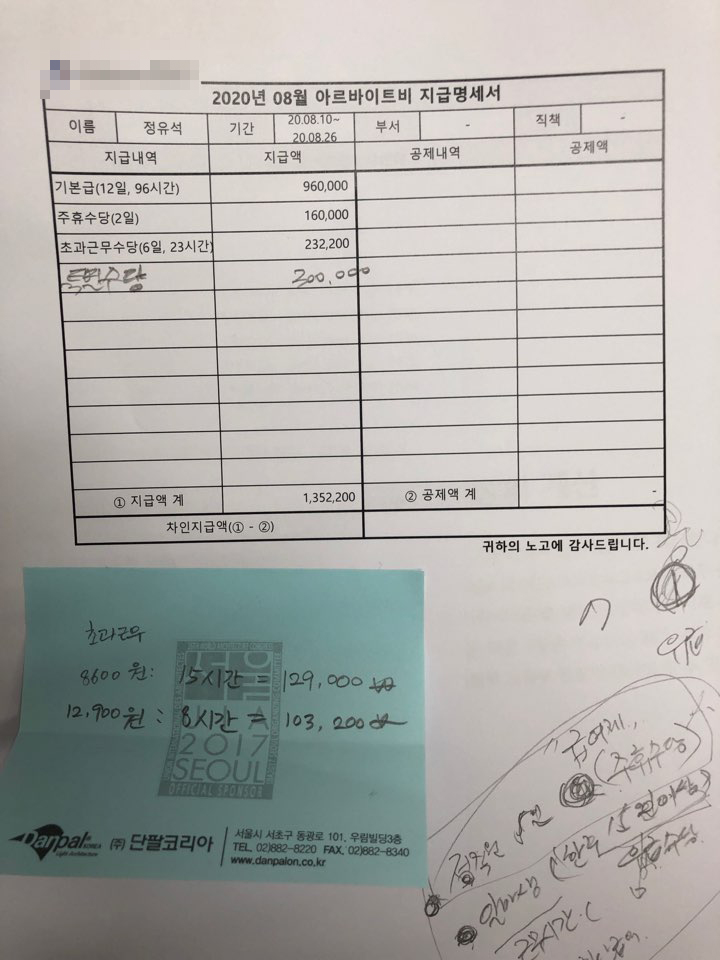 2020년 08월 아르바이트비 지급명세서
이름 정유석 기간 20.08.10~ 20.08.26 부서 - 직책 -
지급내역 지급액 공제내역 공제액
기본급(12일, 96시간) 960,000
주휴수당(2일) 160,000
초과근무수당(6일, 23시간) 232,200
특별수당 200,000
① 지급액 계 1,352,200 ② 공제액 계 -
차인지급액(① - ②)
귀하의 노고에 감사드립니다.
초과근무
8600원: 15시간 = 129,000
12,900원: 8시간 = 103,200
UIA
2017
SEOUL
OFFICIAL SPONSOR
Danpal KOREA
Light Architecture
(주) 단팔코리아
서울시 서초구 동광로 101. 우림빌딩3층
TEL. 02)882-8220 FAX. 02)882-8340
www.danpalon.co.kr
급여제,
(주휴수당)